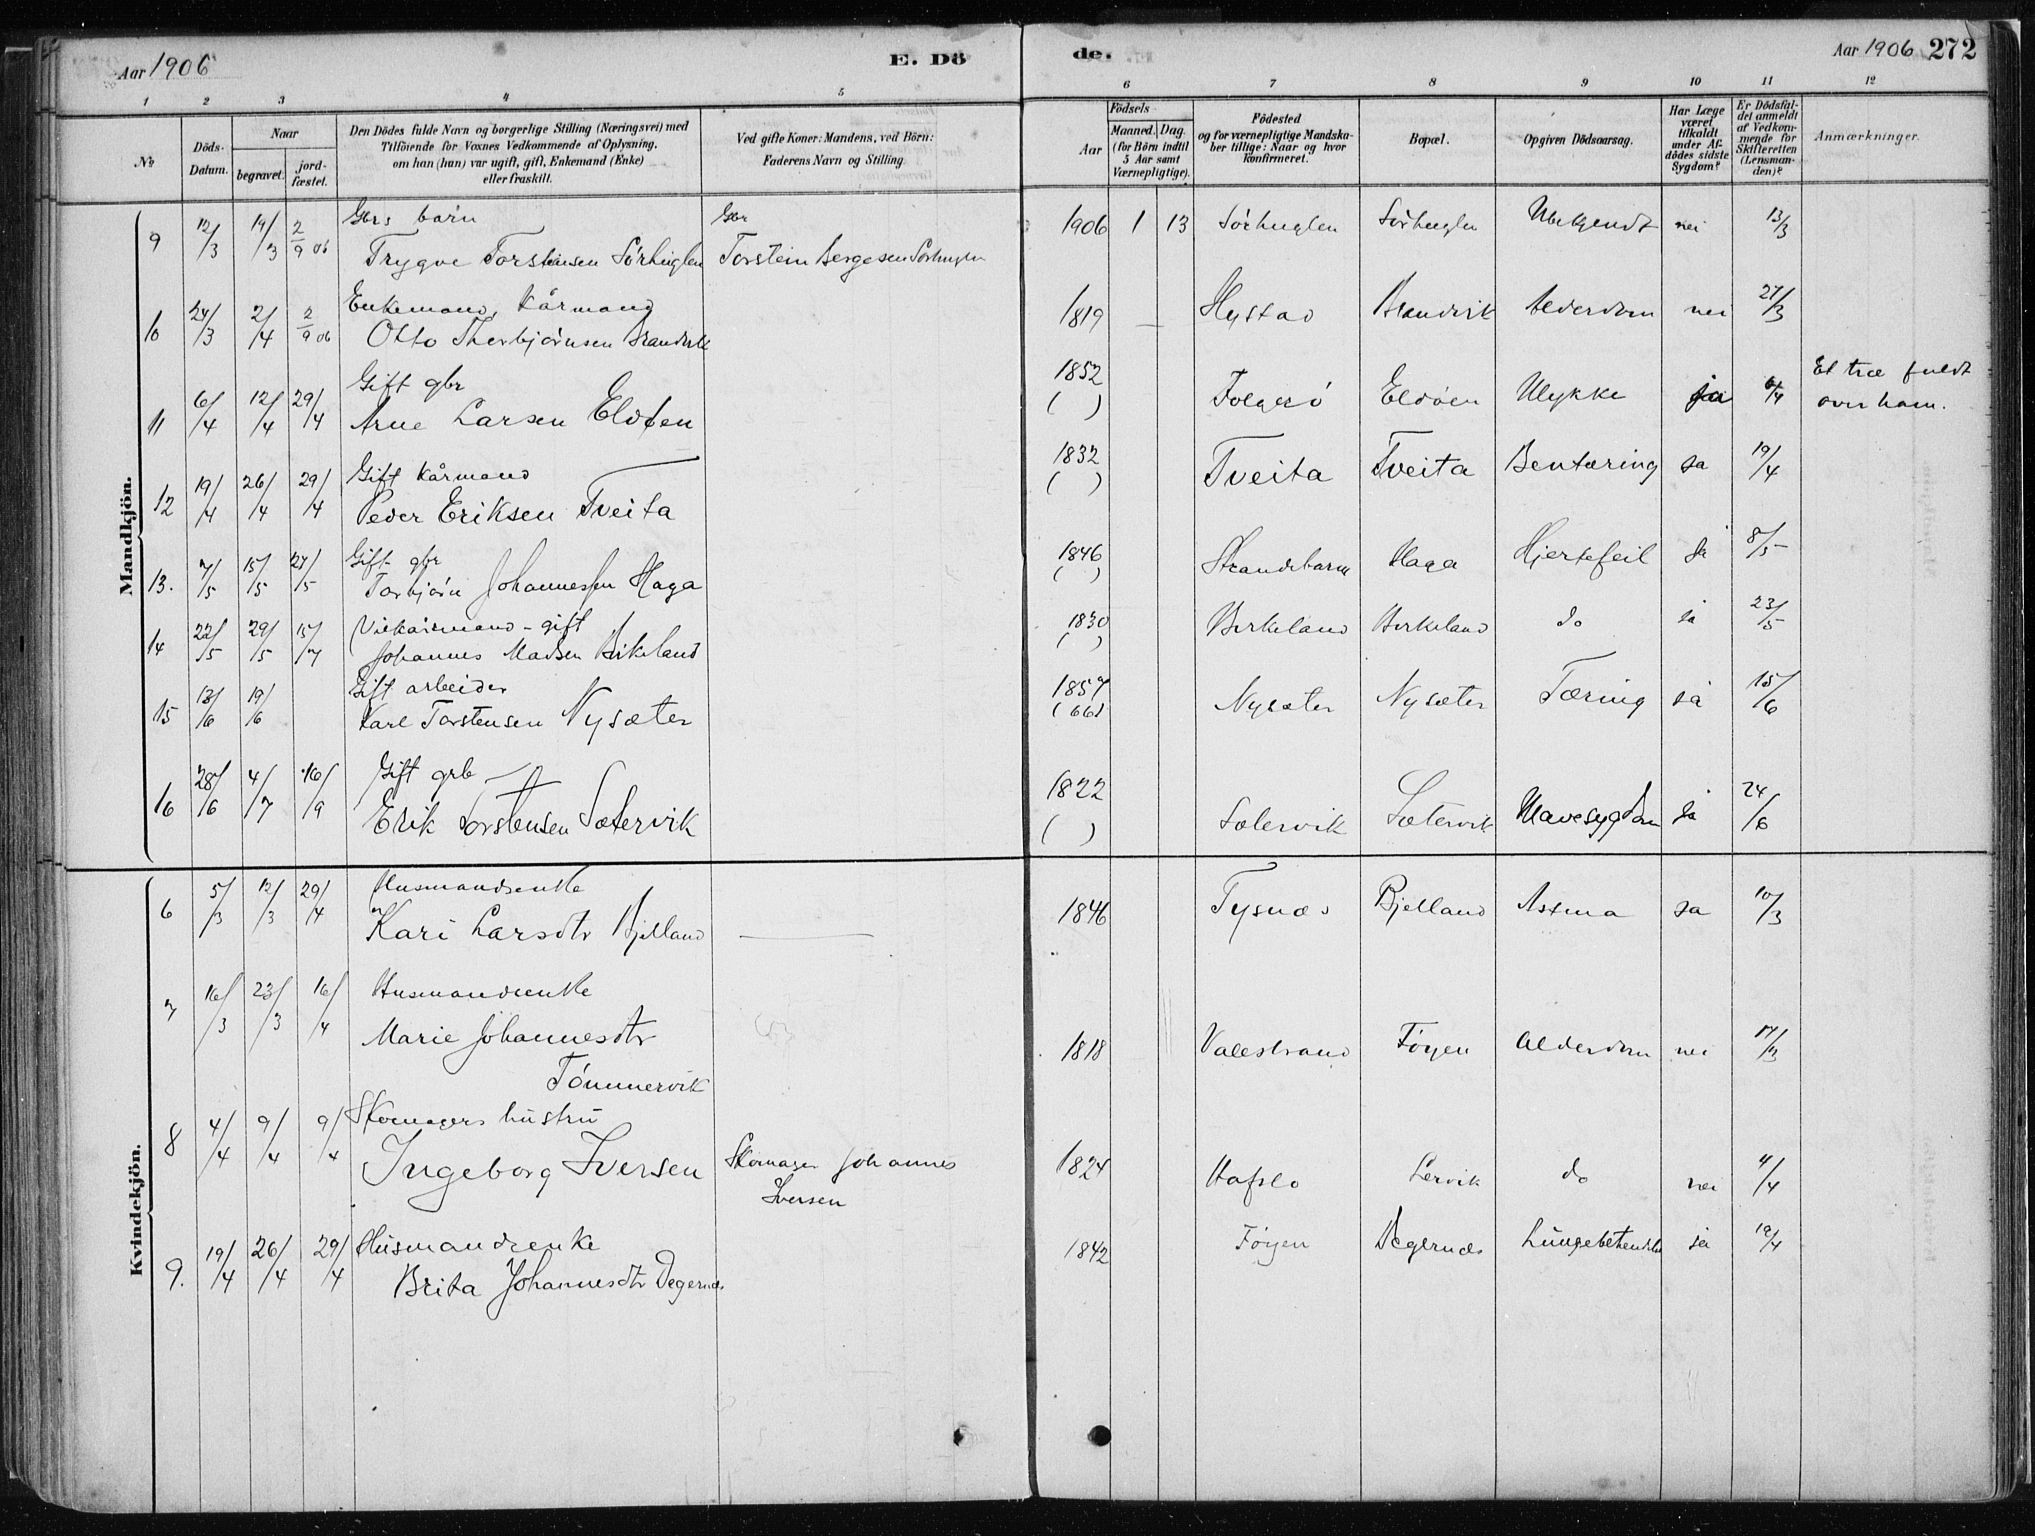 Aar 1906 E. Dö de. Aar 1906 272
1 2 3 4 5 6 7 8 9 10 11 12
No
Döds-Datum.
Naar
begravet. jord-fæstet.
Den Dödes fulde Navn og borgerlige Stilling (Næringsvei) med
Tilföiende for Voxnes Vedkommende af Oplysning,
om han (hun) var ugift, gift, Enkemand (Enke)
eller fraskilt.
Ved gifte Koner: Mandens, ved Börn:
Faderens Navn og Stilling.
Födsels
Aar
Maaned. Dag.
(for Börn indtil
5 Aar samt
Værnepligtige).
Födested
og for værnepligtige Mandska-
ber tillige: Naar og hvor
konfirmeret.
Bopæl.
Opgiven Dödsaarsag.
Har Læge
været
tilkaldt
under Af-
dödes sidste
Sygdom?
Er Dödsfal-
det anmeldt
af Vedkom-
mende for
Skifteretten
(Lensman-
den)?
Anmærkninger.
Mandkjön.
Gbrs barn Gbr
9 12/3 19/3 2/9 06 Trygve Torsteinsen Sörhuglen Torstein Bergesen Sörhuglen 1906 1 13 Sörhuglen Sörhuglen Ubekjendt nei 13/3
Enkemand, Kårmand
10 24/3 2/4 2/9 06 Otto Thorbjörnsen Brandvik 1819 — Hystad Brandvik Alderdom nei 27/3
Gift gbr
11 6/4 12/4 29/4 Arne Larsen Eldöen 1852 ( ) Folgerö Eldöen Ulykke ja 6/4 Et træ fuldt
over ham.
Gift Kårmand
12 19/4 26/4 29/4 Peder Eriksen Tveita 1832 ( ) Tveita Tveita Bentæring ja 19/4
Gift gbr
13. 7/5 15/5 27/5 Torbjörn Johannessen Haga 1846 ( ) Strandebarm Haga Hjertefeil ja 8/5
Vilkårmand - gift
14 22/5 29/5 15/7 Johannes Madsen Birkeland 1830 ( ) Birkeland Birkeland do ja 23/5
Gift arbeider
15 13/6 19/6 Karl Torstensen Nysæter 1857 (66) Nysæter Nysæter Tæring ja 15/6
Gift grb
16 28/6 4/7 16/9 Erik Torstensen Sætervik 1822 ( ) Sætervik Sætervik Mavesygdom ja 24/6
Kvindekjön.
Husmandsenke
6 5/3 12/3 29/4 Kari Larsdtr Bjelland — 1846 Tysnæs Bjelland Astma ja 10/3
Husmandsenke
7 16/3 23/3 16/4 Marie Johannesdtr 1818 Valestrand Föyen Alderdom nei 17/3
Tömmervik
Skomagers hustru
8 4/4 9/4 9/4 Ingeborg Iversen Skomager Johannes 1824 Hafslo Lervik do nei 4/4
Iversen
Husmandsenke
9. 19/4 26/4 29/4 Brita Johannesdtr Degernes 1842 Föyen Degernæs Lungebetendelse ja 19/4